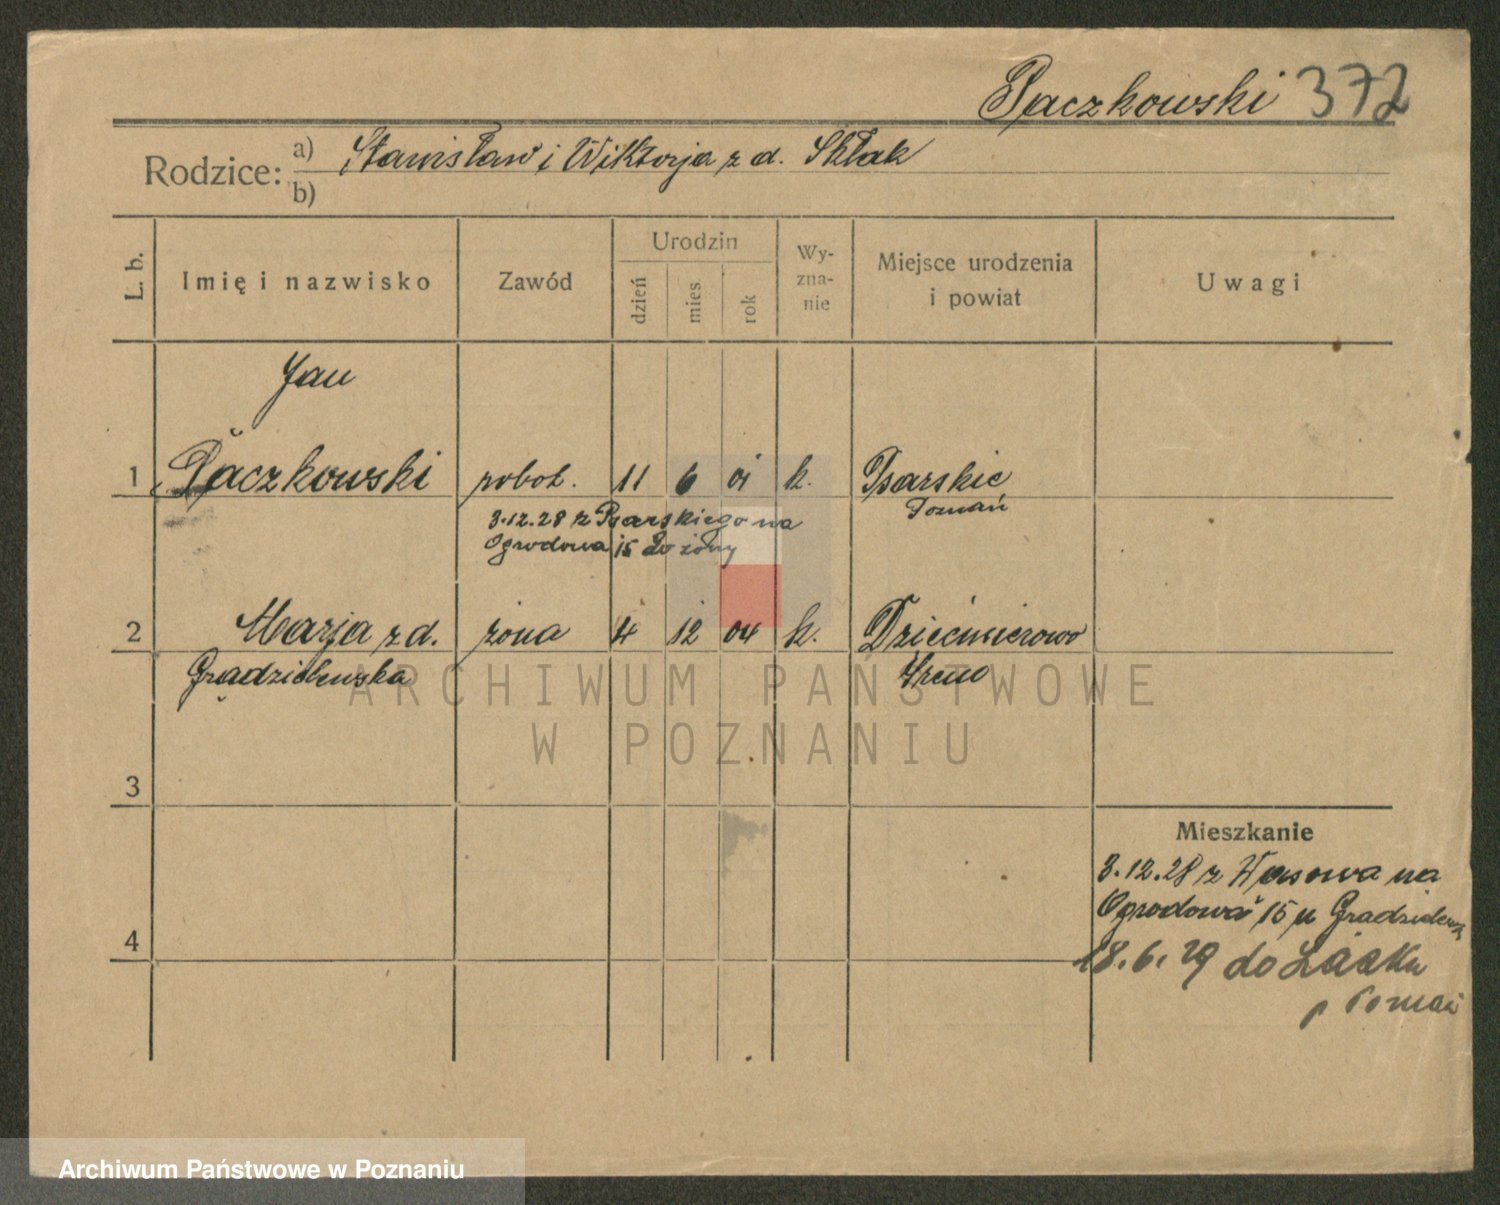 Paczkowski 372
Rodzice: a) Stanisław i Wiktorja z d. Skłak
b)
L. b. Imię i nazwisko Zawód Urodzin dzień mies. rok Wy-zna-nie Miejsce urodzenia i powiat Uwagi
Jan
1 Paczkowski robot. 11 6 01 k. Psarskie
Poznań
3.12.28 z Psarskiego na
Ogrodowa 15 do żony
2 Marja z d. żona 4 12 04 k. Dziećmierowo
Grądzielewska Śrem
ARCHIWUM PAŃSTWOWE
W POZNANIU
3
Mieszkanie
3.12.28 z na
Ogrodowa 15 u
4
18.6.29 do
p Poznań
Archiwum Państwowe w Poznaniu